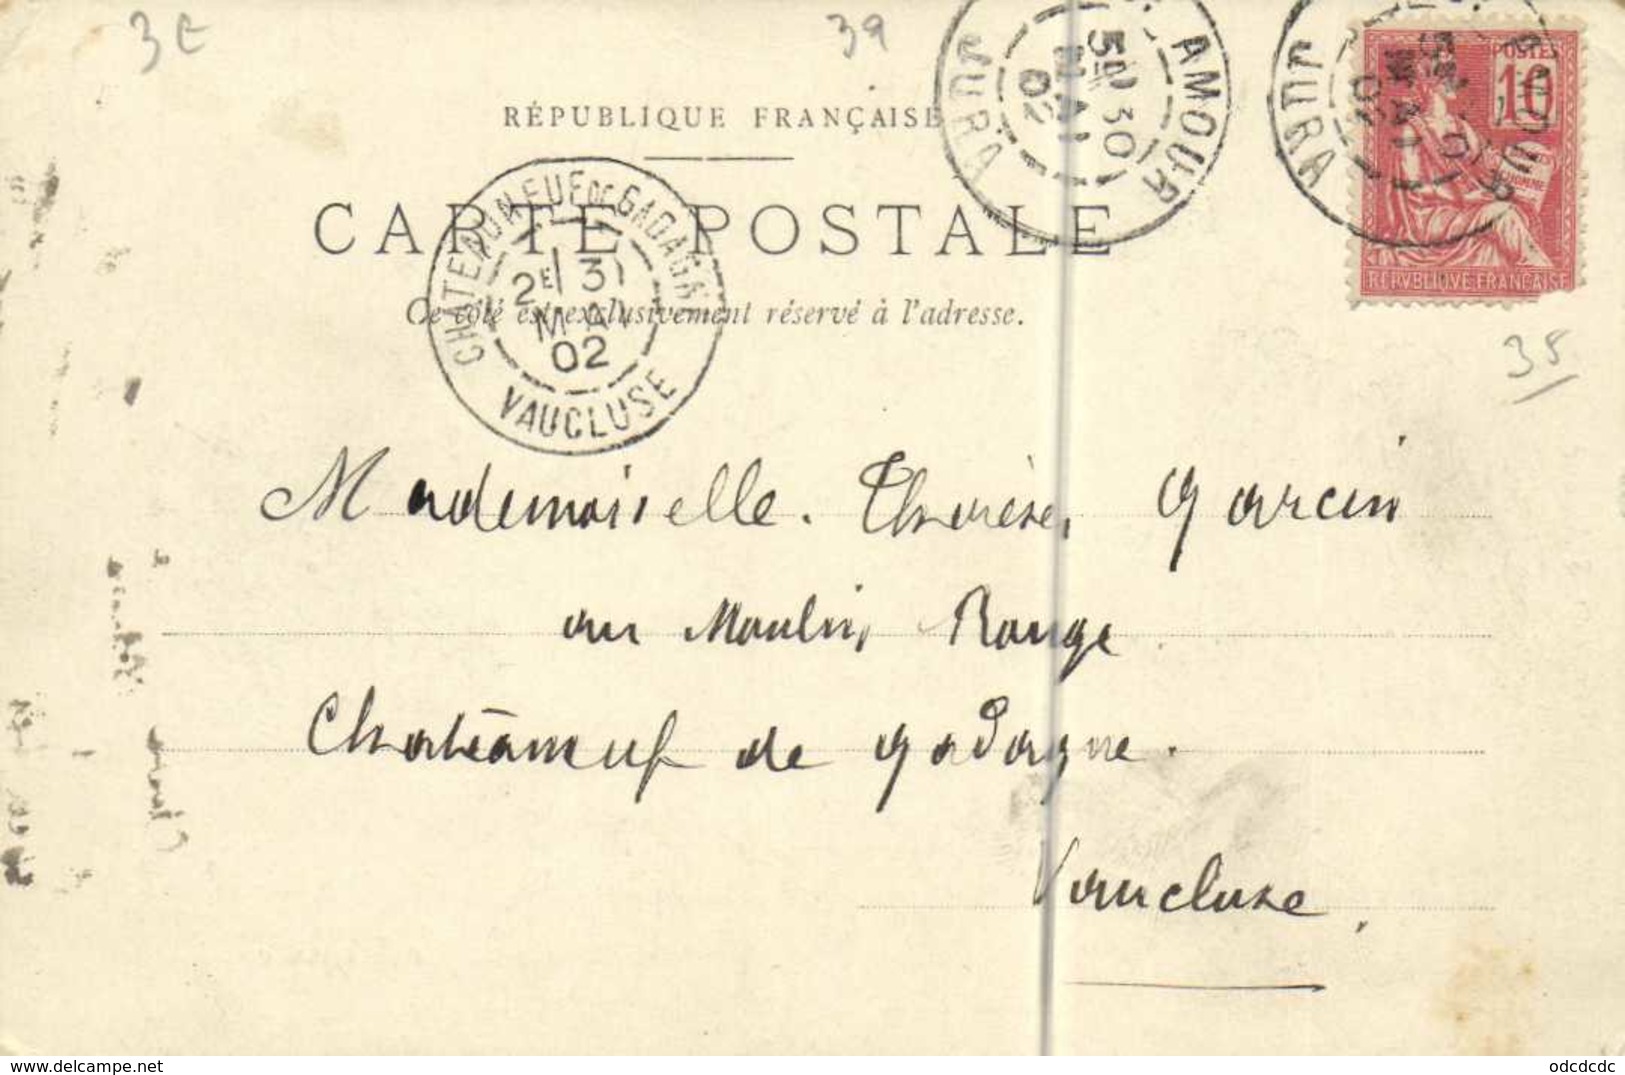 3 E
39
RÉPUBLIQUE FRANÇAISE
CARTE POSTALE
Ce côté est exclusivement réservé à l'adresse.
AMOUR
5H 30
MAI
02
JURA
POSTES
10
REPVBLIQVE FRANÇAISE
CHATEAUNEUF DE GADAGNE
2E 31
MAI
02
VAUCLUSE
35
Mademoiselle. Thérèse Garcin
au Moulin Rouge
Chateauneuf de Gadagne.
Vaucluse.
odcdcdc